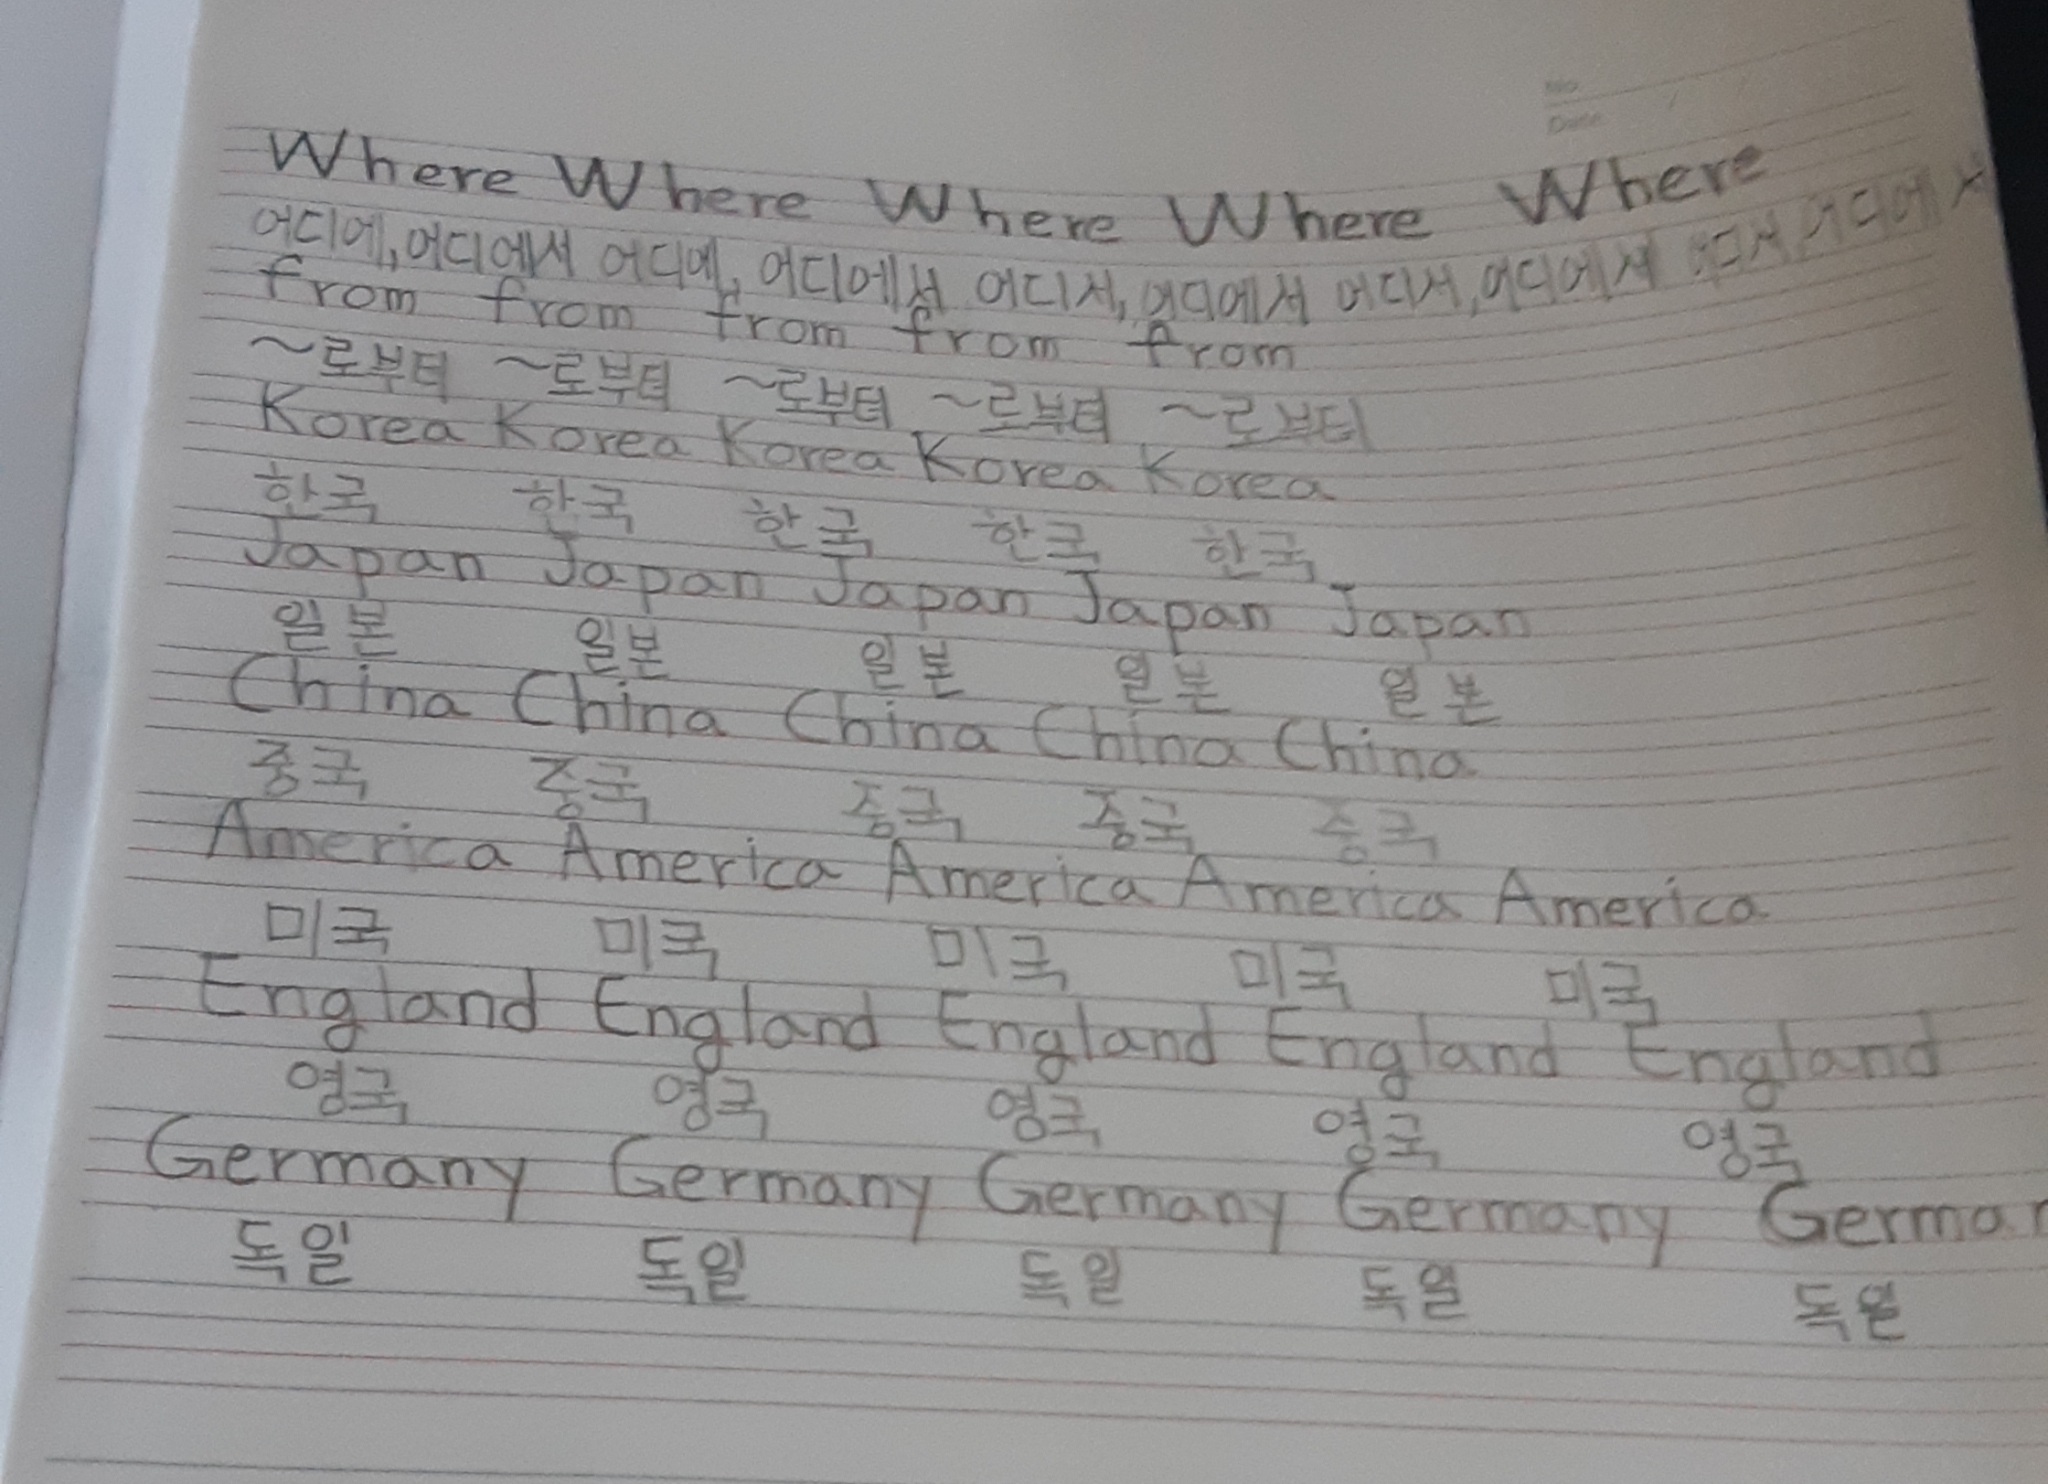 Where Where Where Where Where
어디에, 어디에서 어디에, 어디에서 어디서, 어디에서 어디서, 어디에서 어디서 어디에서
from from from from from
~로부터 ~로부터 ~로부터 ~로부터 ~로부터
Korea Korea Korea Korea Korea
한국 한국 한국 한국 한국
Japan Japan Japan Japan Japan
일본 일본 일본 일본 일본
China China China China China
중국 중국 중국 중국 중국
America America America America America
미국 미국 미국 미국 미국
England England England England England
영국 영국 영국 영국 영국
Germany Germany Germany Germany German
독일 독일 독일 독일 독일